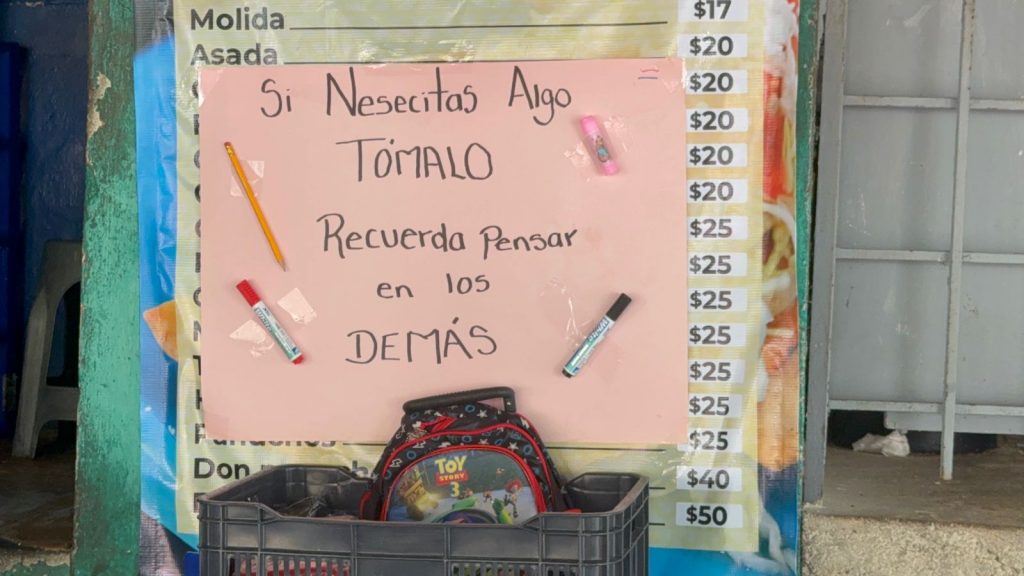 Molida $17
Asada $20
$20
$20
$20
$20
$25
$25
$25
$25
$25
$25
$25
Don $40
$50
Si Nesecitas Algo
TÓMALO
Recuerda Pensar
en los
DEMÁS
TOY
STORY
3